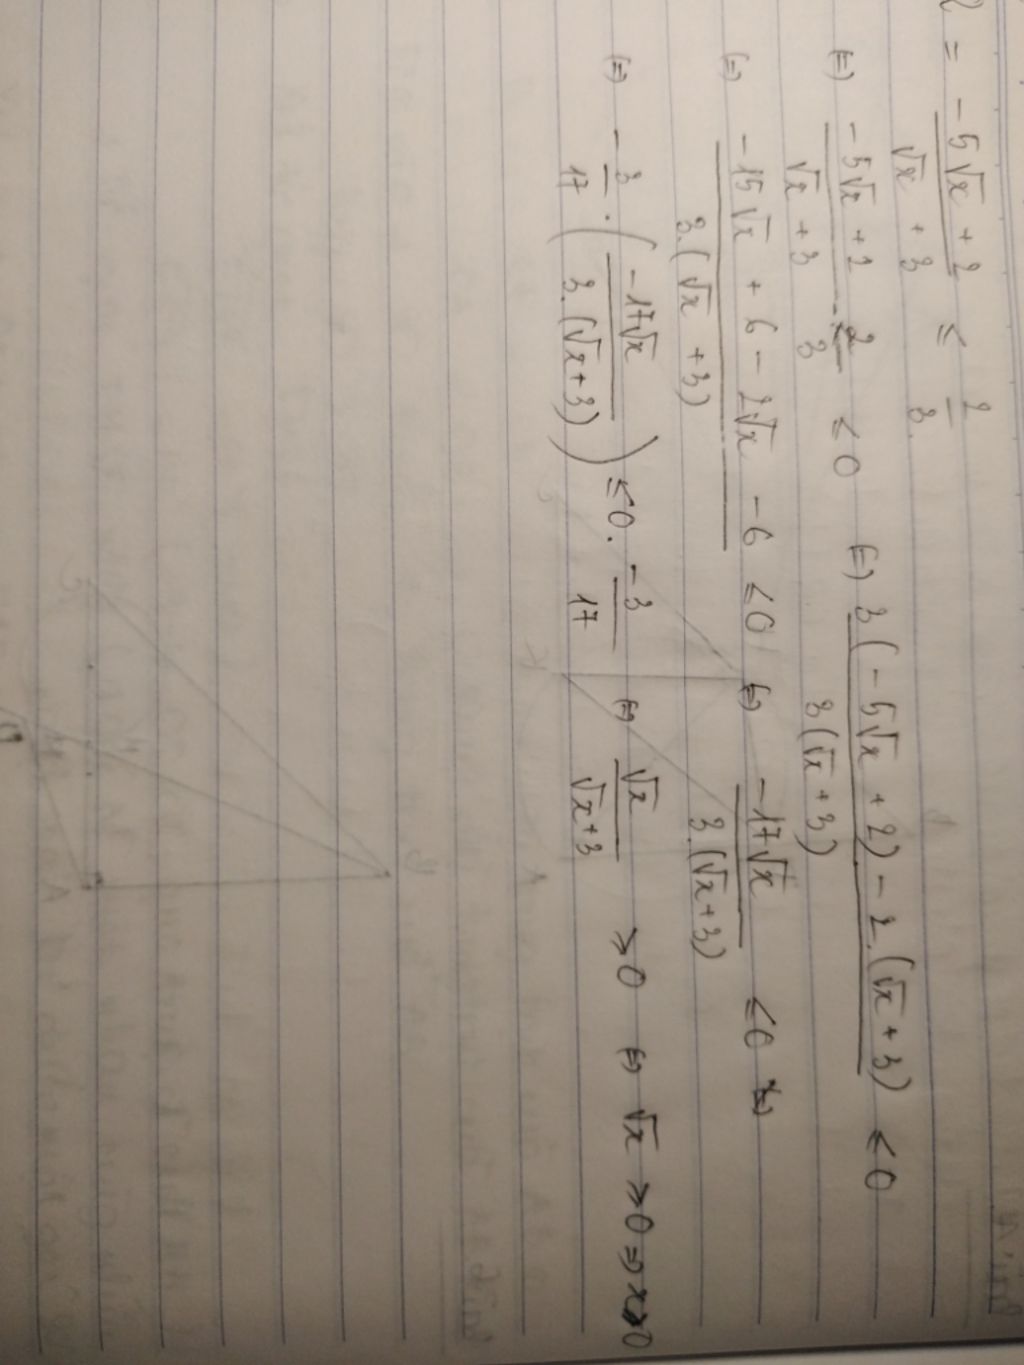 = \frac{-5\sqrt{x} + 2}{\sqrt{x} + 3} ≤ \frac{2}{3}
(=) \frac{-5\sqrt{x} + 2}{\sqrt{x} + 3} - \frac{2}{3} ≤ 0 (=) \frac{3(-5\sqrt{x} + 2) - 2.(\sqrt{x} + 3)}{3(\sqrt{x} + 3)} ≤ 0
(=) \frac{-15\sqrt{x} + 6 - 2\sqrt{x} - 6}{3.(\sqrt{x} + 3)} ≤ 0 (=) \frac{-17\sqrt{x}}{3.(\sqrt{x} + 3)} ≤ 0
(=) -\frac{3}{17} . (\frac{-17\sqrt{x}}{3.(\sqrt{x} + 3)}) ≤ 0. \frac{-3}{17} (=) \frac{\sqrt{x}}{\sqrt{x} + 3} ≥ 0 (=) \sqrt{x} ≥ 0 => x ≥ 0